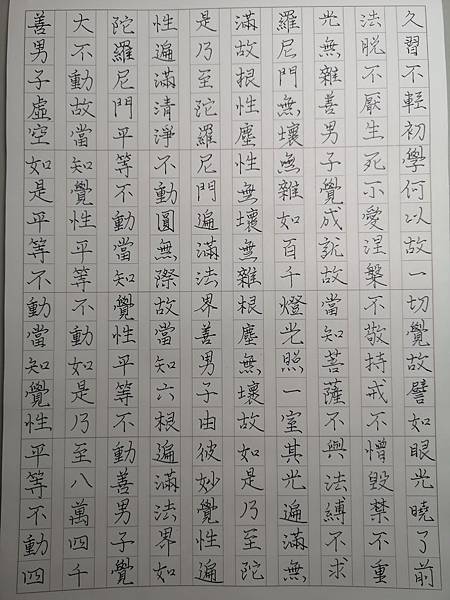 久習不輕初學何以故一切覺故譬如眼光曉了前
法脱不厭生死不愛涅槃不敬持戒不憎毀禁不重
光無雜善男子覺成就故當知菩薩不與法縛不求
羅尼門無壞無雜如百千燈光照一室其光遍滿無
滿故根性塵性無壞無雜根塵無壞故如是乃至陀
是乃至陀羅尼門遍滿法界善男子由彼妙覺性遍
性遍滿清淨不動圓無際故當知六根遍滿法界如
陀羅尼門平等不動當知覺性平等不動善男子覺
大不動故當知覺性平等不動如是乃至八萬四千
善男子虛空如是平等不動當知覺性平等不動四